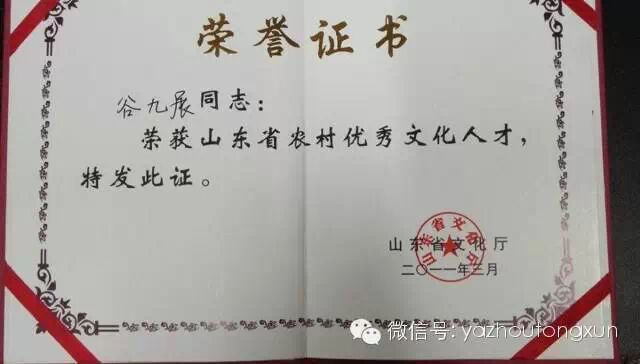 荣誉证书
谷九展同志：
荣获山东省农村优秀文化人才，
特发此证。
山东省文化厅
山东省文化厅
二〇一一年三月
微信号: yazhoutongxun